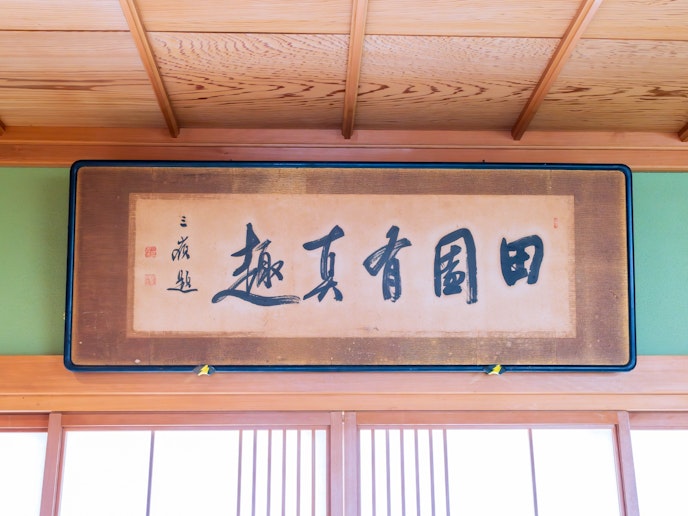 田園有真趣
三嶽題